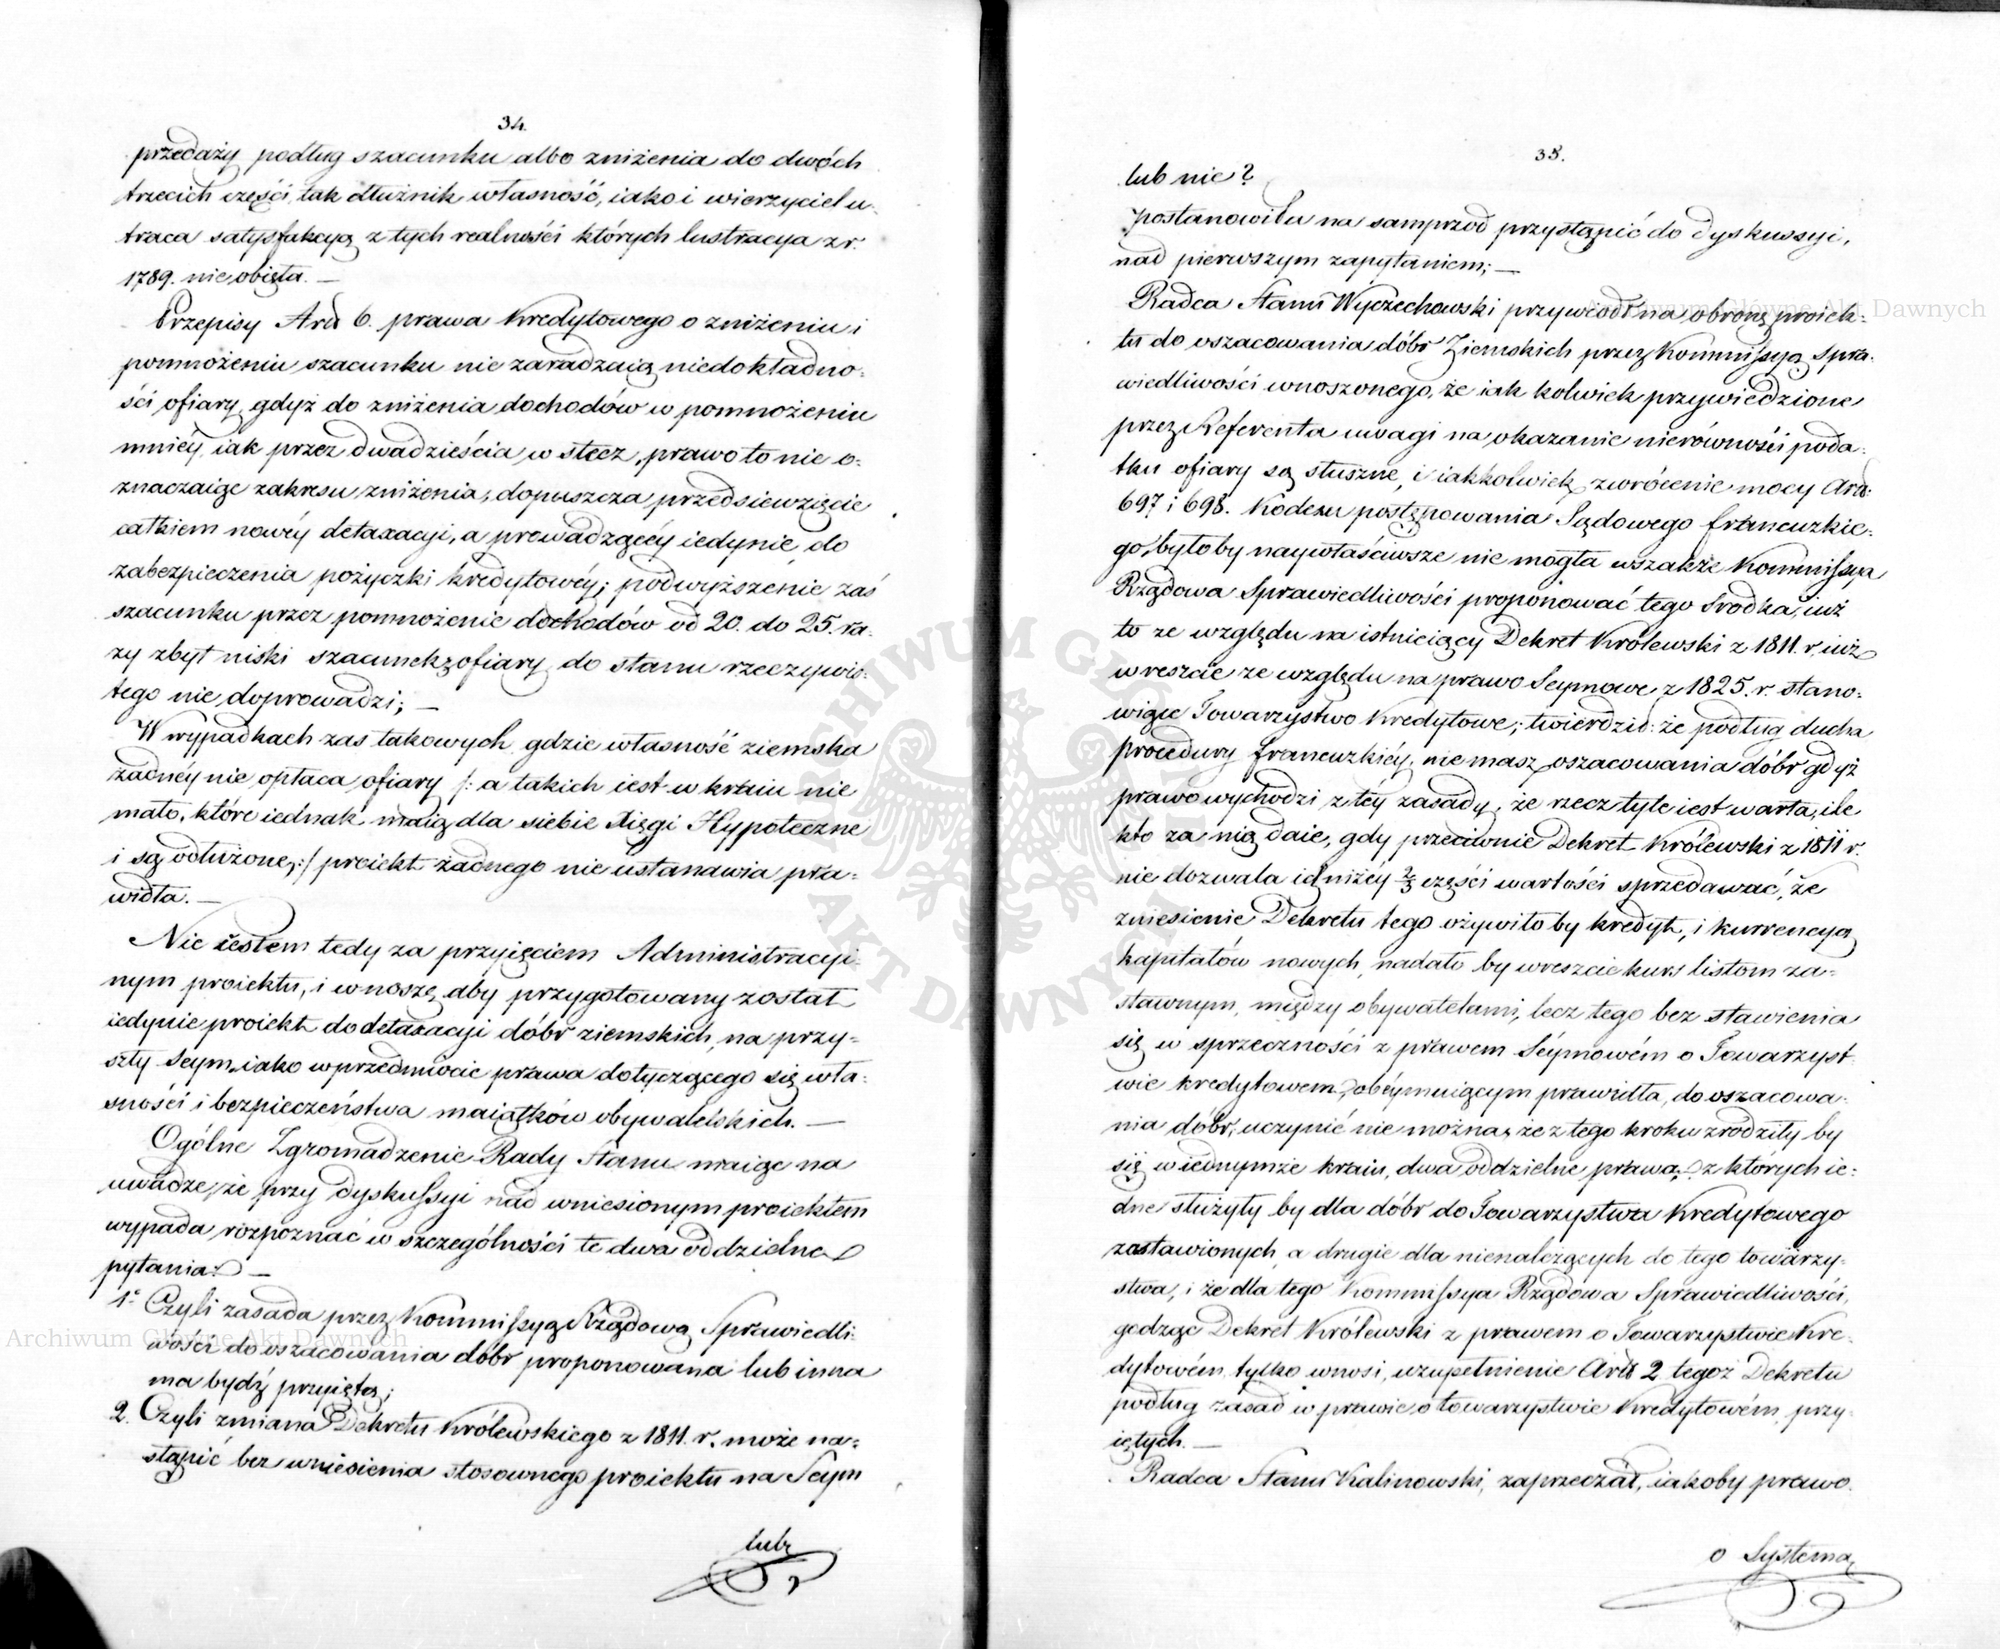 34.
przedaży podług szacunku albo zniżenia do dwóch
trzecich części, tak dłużnik własność, iako i wierzyciel u-
traca satysfakcyą z tych realności których lustracya z r.
1789. nie obięła. —
Przepisy Artt 6. prawa Kredytowego o zniżeniu i
pomnożeniu szacunku nie zaradzaią niedokładno-
ści ofiary, gdyż do zniżenia dochodów w pomnożeniu
mniéy iak przez dwadzieścia w stecz, prawo to nie o-
znaczaiąc zakresu zniżenia, dopuszcza przedsięwzięcie
całkiem nowéy detaxacyi, a prowadzącéy iedynie do
zabezpieczenia pożyczki kredytowéy; podwyższenie zaś
szacunku przez pomnożenie dochodów od 20. do 25. ra-
zy zbyt niski szacunek z ofiary do stanu rzeczywis-
tego nie doprowadzi; —
W wypadkach zas takowych gdzie własność ziemska
żadnéy nie opłaca ofiary /: a takich iest w kraiu nie
mało, które iednak maią dla siebie Xięgi Hypoteczne
i są odłużone, :/ proiekt żadnego nie ustanawia pra-
widła. —
Nie iestem tedy za przyięciem Administracyi-
nym proiektu, i wnoszę aby przygotowany został
iedynie proiekt do detaxacyi dóbr ziemskich, na przy-
szły Seym, iako w przedmiocie prawa dotyczącego się wła-
sności i bezpieczeństwa maiątków obywatelskich. —
Ogólne Zgromadzenie Rady Stanu maiąc na
uwadze, że przy dyskussyi nad wniesionym proiektem
wypada rozpoznać w szczególności te dwa oddzielne
pytania: —
1° Czyli zasada przez Kommissyą Rządową Sprawiedli-
wości do oszacowania dóbr proponowana lub inna
ma bydź przyiętą;
2. Czyli zmiana Dekretu Królewskiego z 1811. r. może na-
stąpić bez wniesienia stosownego proiektu na Seym
lub
35.
lub nie?
postanowiła na samprzód przystąpić do dyskussyi,
nad pierwszym zapytaniem; —
Radca Stanu Wyczechowski przywiodł na obronę proiek-
tu do oszacowania dóbr Ziemskich przez Kommissyą Spra-
wiedliwości wnoszonego, że iak kolwiek przywiedzione
przez Referenta uwagi na okazanie nierówności poda-
tku ofiary są słuszne, i iakkolwiek zwrócenie mocy Artt
697 i 698. Kodexu postępowania Sądowego francuzkie-
go, byłoby naywłaściwsze nie mogła wszakże Kommissya
Rządowa Sprawiedliwości proponować tego środka, iuż
to ze względu na istnieiący Dekret Królewski z 1811. r. iuż
wreszcie ze względu na prawo Seymowe z 1825. r. stano-
wiące Towarzystwo Kredytowe; twierdził: że podług ducha
procedury francuzkiéy, nie masz oszacowania dóbr gdyż
prawo wychodzi z téy zasady, że rzecz tyle iest warta, ile
kto za nią daie, gdy przeciwnie Dekret Królewski z 1811 r.
nie dozwala iéj niżey 2/3 części wartości sprzedawać, że
zniesienie Dekretu tego ożywiło by kredyt, i kurrencyą
kapitałów nowych, nadało by wreszcie kurs listom za-
stawnym, między obywatelami, lecz tego bez stawienia
się w sprzeczności z prawem Séymowém o Towarzyst-
wie kredytowem, obéymuiącym prawidła, do oszacowa-
nia dóbr, uczynić nie można, że z tego kroku zrodziły by
się w iednymże kraiu, dwa oddzielne prawa, z których ie-
dne służyły by dla dóbr do Towarzystwa Kredytowego
zastawionych, a drugie dla nienależących do tego towarzy-
stwa, i że dla tego Kommissya Rządowa Sprawiedliwości,
godząc Dekret Królewski z prawem o Towarzystwie Kre-
dytowém tylko wnosi, uzupełnienie Artt 2 tegoż Dekretu
podług zasad w prawie o towarzystwie Kredytowém przy-
iętych. —
Radca Stanu Kalinowski, zaprzeczał, iakoby prawo
o Systema
Archiwum Główne Akt Dawnych
Archiwum Główne Akt Dawnych
ARCHIWUM GŁÓWNE AKT DAWNYCH